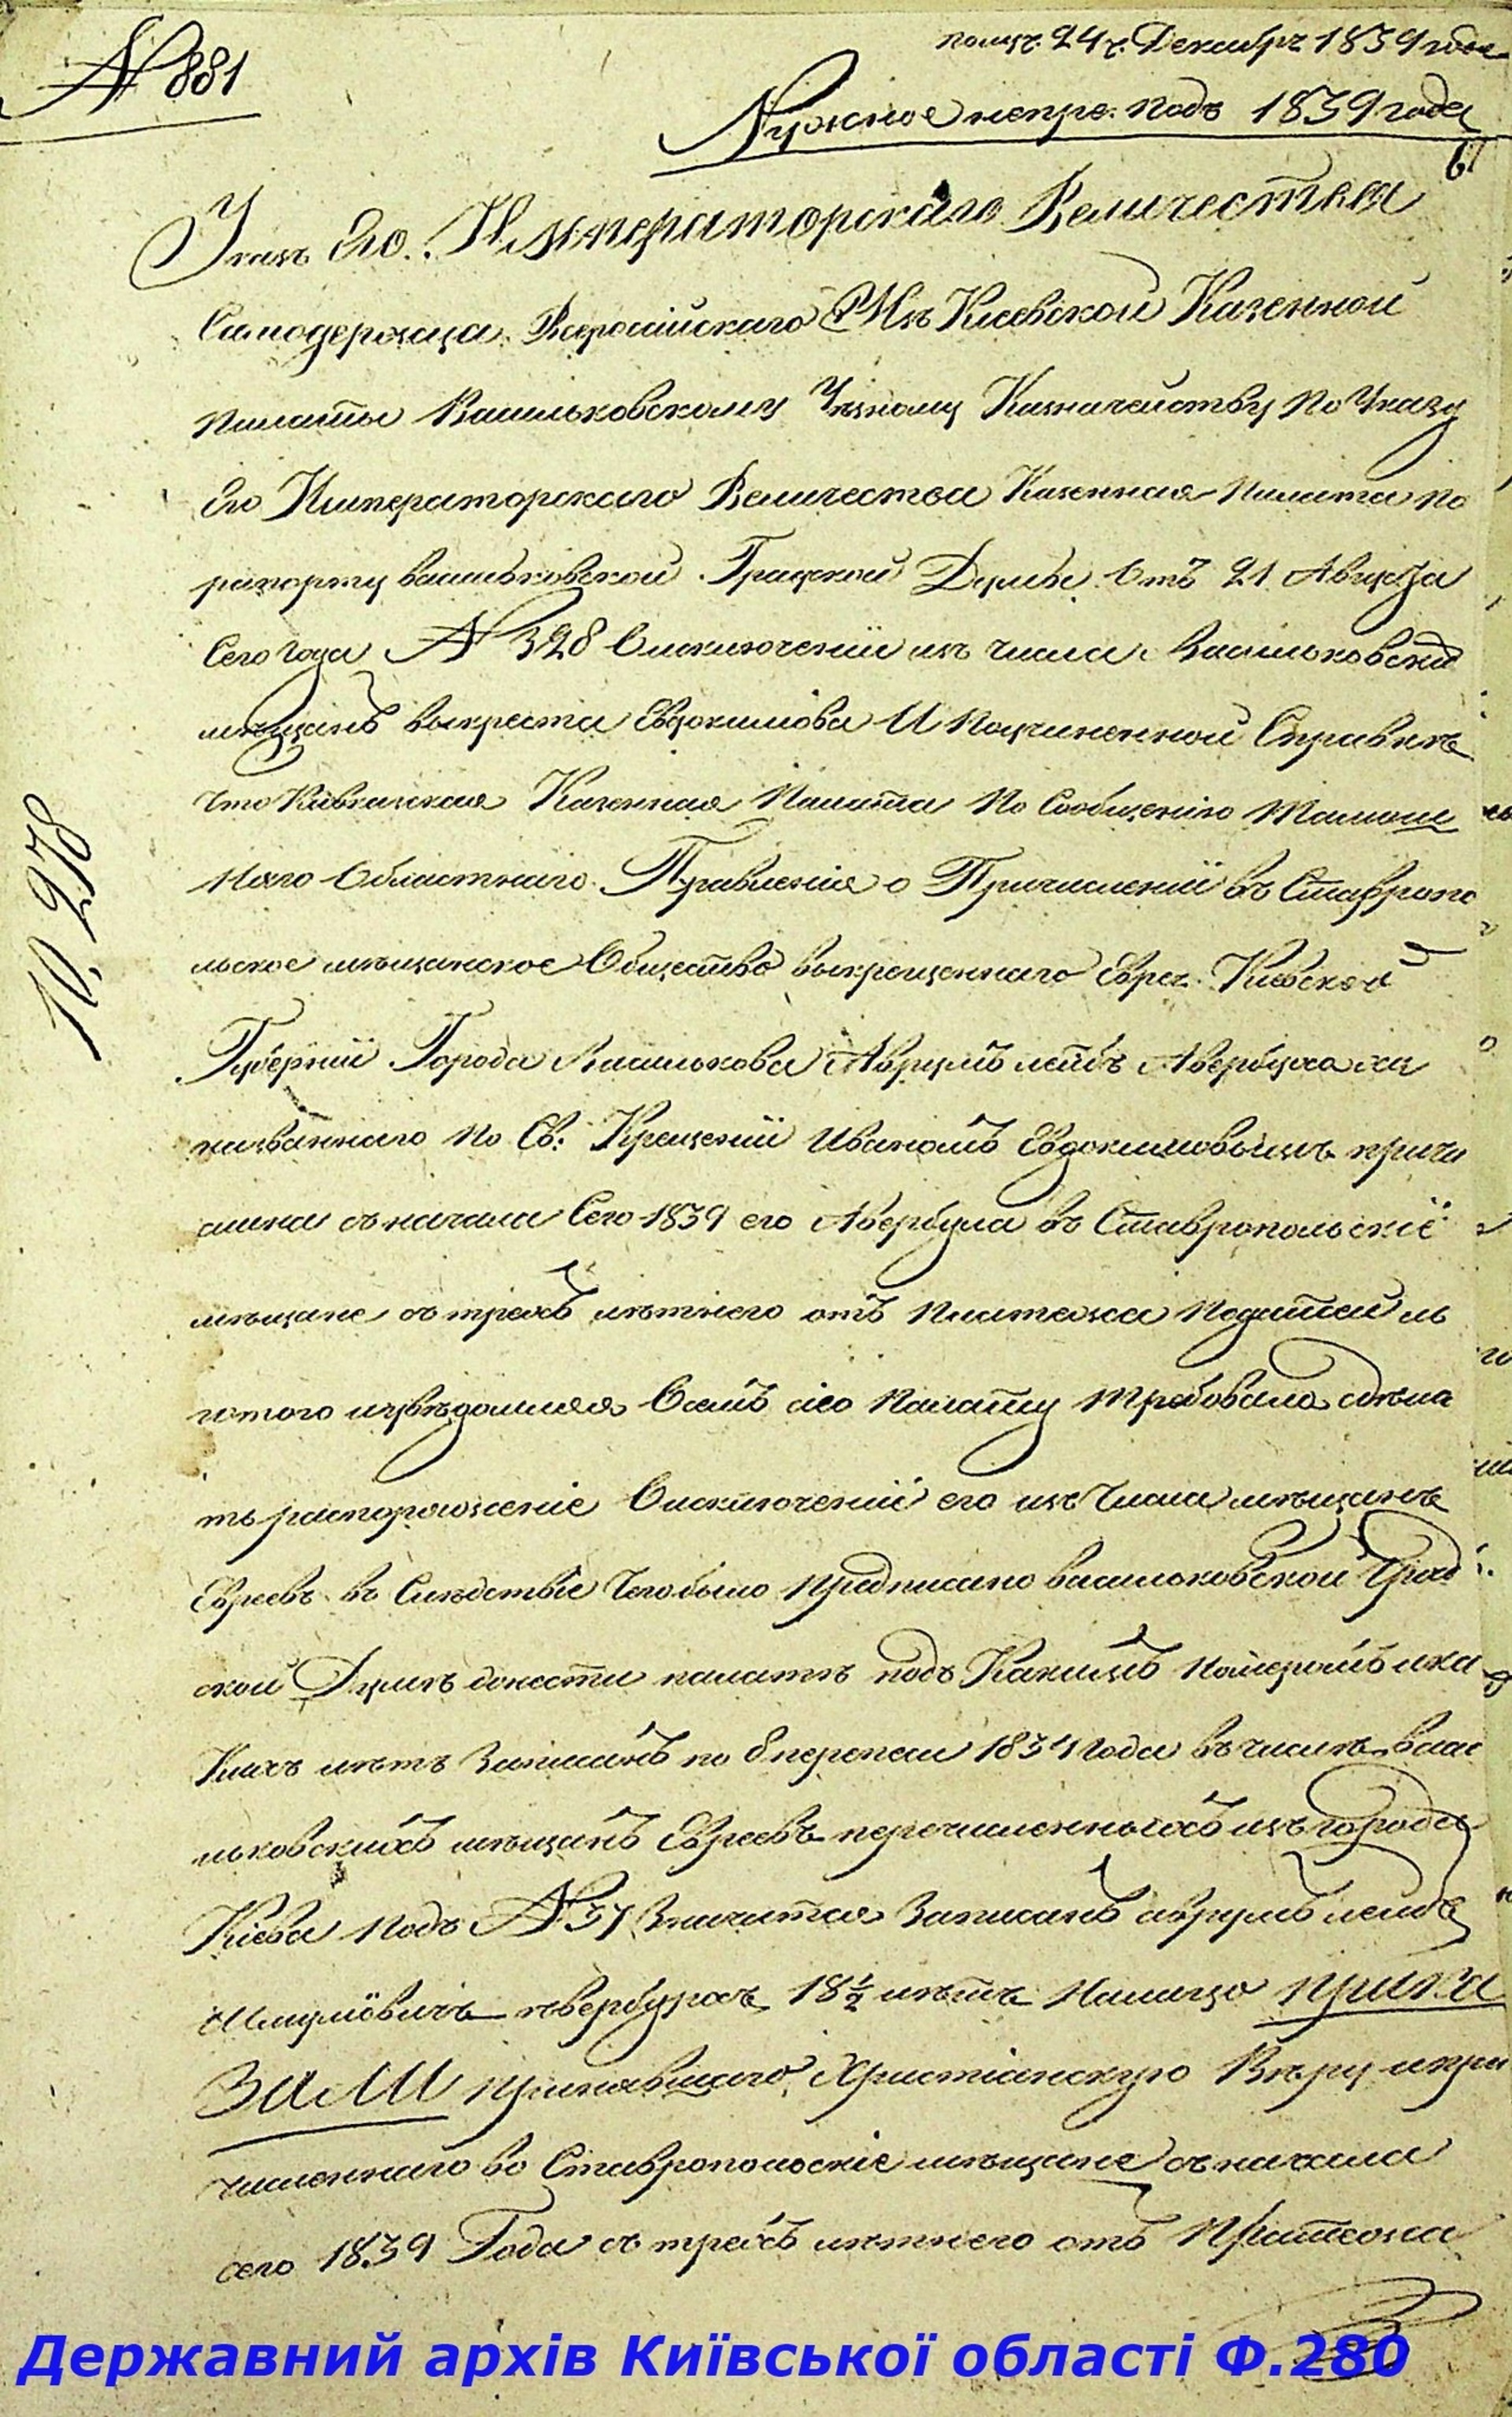 № 881
получ. 24 ч. Декабря 1839 года
Нужное непре. подъ 1839 года
Указъ Его Императорскаго Величества
Самодержца Всероссійскаго Изъ Киевской Казенной
Палаты Васильковскому Уездному Казначейству По Указу
Его Императорскаго Величества Казенная Палата по
рапорту васильковской Градской Думы Отъ 21 Августа
Сего Года № 328 Оисключеніи изъ числа Васильковски
мещанъ выкреста Евдокимова И Поучиненной Справке
Что Кавказская Казенная Палата По Сообщенію Тамош
няго Областнаго Правленія о Причисленіи въ Ставропо
льское мещанское Общество выкрещеннаго Еврея Киевской
Губерніи Города Василькова Аврумъ лейбъ Авербуха
названнаго По Св: Крещеніи Иваномъ Евдокимовымъ причи
слила съ начала Сего 1839 его Авербуха въ Ставропольскіе
мещане съ трехъ летнего отъ Платежа Податей ль
готого Осемъ сію Палату требовала сдела
ть распоряженіе Оисключеніи его изъ Числа мещанъ
Евреевъ въ Следствіе Чего было предписано васильковской Град
ской Думе донести палате подъ Какимъ Номеромъ ика
Кихъ летъ Записанъ по 8 переписи 1834 года въ числе васи
льковскихъ мещанъ Евреевъ перечисленныхъ изъ города
Кіева Подъ № 37 Значится Записанъ аврумъ лейбъ
Шмулiовичъ авербухъ 18 1/2 летъ Палата прика
зали принявшаго Христіанскую Веру ипри
численнаго во Ставропольскіе мещане съ начала
сего 1839 Года съ трехъ летнего отъ Платежа
10,278
Державний архів Київської області Ф.280